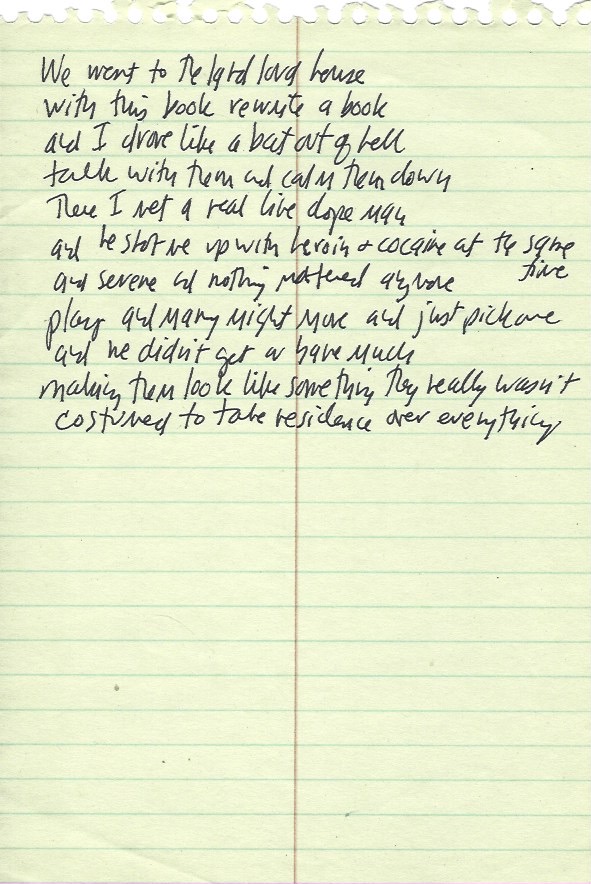 We went to the land lord house
with this book rewrite a book
and I drove like a bat out of hell
talk with them and calm them down
There I met a real live dope man
and he shot me up with heroin + cocaine at the same
time
and serene and nothing mattered anymore
play and many might more and just pick one
and he didn't get or have much
making them look like something they really wasn't
costumed to take residence over everything